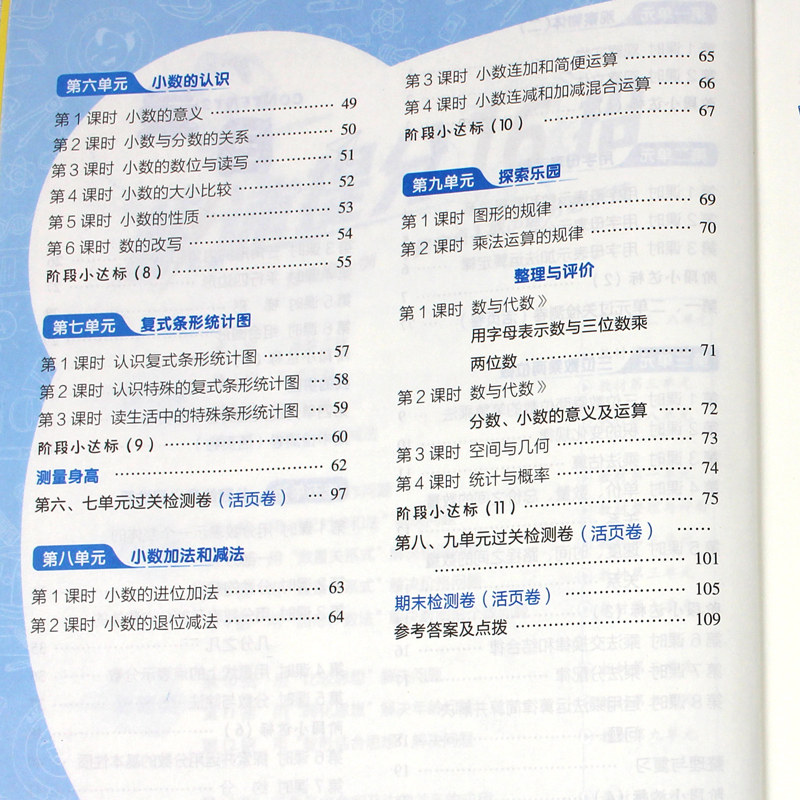 第六单元 小数的认识
第1课时 小数的意义 ………… 49
第2课时 小数与分数的关系 ………… 50
第3课时 小数的数位与读写 ………… 51
第4课时 小数的大小比较 ………… 52
第5课时 小数的性质 ………… 53
第6课时 数的改写 ………… 54
阶段小达标(8) ………… 55
第七单元 复式条形统计图
第1课时 认识复式条形统计图 ………… 57
第2课时 认识特殊的复式条形统计图 … 58
第3课时 读生活中的特殊条形统计图 … 59
阶段小达标(9) ………… 60
测量身高 ………… 62
第六、七单元过关检测卷(活页卷) … 97
第八单元 小数加法和减法
第1课时 小数的进位加法 ………… 63
第2课时 小数的退位减法 ………… 64
第3课时 小数连加和简便运算 ………… 65
第4课时 小数连减和加减混合运算 ………… 66
阶段小达标(10) ………… 67
第九单元 探索乐园
第1课时 图形的规律 ………… 69
第2课时 乘法运算的规律 ………… 70
整理与评价
第1课时 数与代数》
用字母表示数与三位数乘
两位数 ………… 71
第2课时 数与代数》
分数、小数的意义及运算 ………… 72
第3课时 空间与几何 ………… 73
第4课时 统计与概率 ………… 74
阶段小达标(11) ………… 75
第八、九单元过关检测卷(活页卷) ……
………… 101
期末检测卷(活页卷) ………… 105
参考答案及点拨 ………… 109